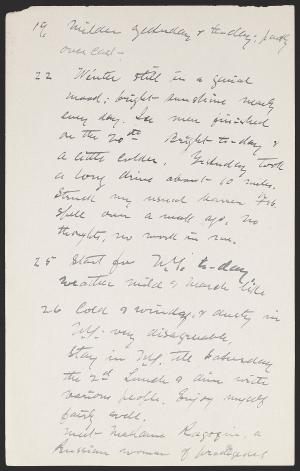 19 Milder yesterday & to-day; partly
overcast -
22 Winter still in a genial
mood; bright sunshine nearly
every day. Ice men finished
on the 20th Bright to-day &
a little colder. Yesterday took
a long drive about 10 miles.
Struck my usual barren
spell over a week ago, no
thoughts, no work in me.
25 Start for N.Y. to-day
Weather mild & March like
26 Cold & windy, & dusty in
N.Y. very disagreeable,
Stay in N.Y. till Saturday
the 2d Lunch & dine with
various people. Enjoy myself
fairly well.
Meet Madame Ragozin, a
Russian woman of prodigious